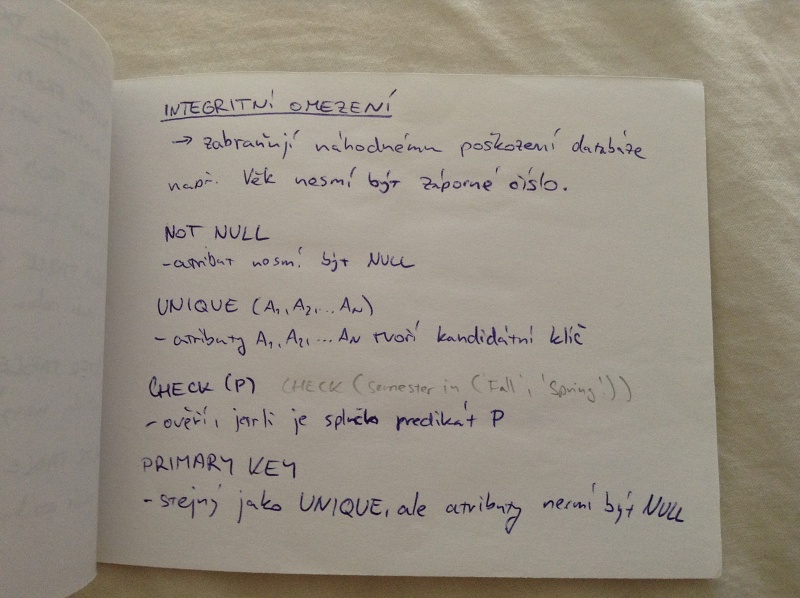 INTEGRITNÍ OMEZENÍ
→ zabraňují náhodnému poškození databáze
např. Věk nesmí být záporné číslo.
NOT NULL
- atribut nesmí být NULL
UNIQUE (A1, A2, ... AN)
- atributy A1, A2, ... AN tvoří kandidátní klíč
CHECK (P) CHECK (semester in ('Fall', 'Spring'))
- ověří, jestli je splněn predikát P
PRIMARY KEY
- stejný jako UNIQUE, ale atributy nesmí být NULL